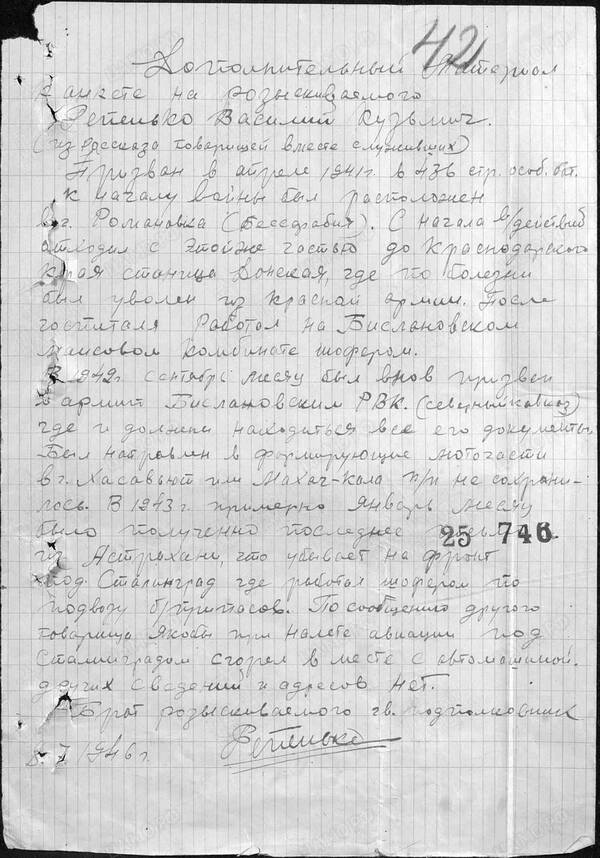 42
Дополнительный материал
к анкете на розыскиваемого
Репенько Василий Кузьмич.
(из рассказа товарищей вместе служивших)
Призван в апреле 1941г. в 436 стр. особ. бат.
к началу войны был расположен
в г. Романовка (Бессарабия). С начала в/действий
отходил с этойже частью до Краснодарского
края станица Донская, где по болезни
был уволен из красной армии. После
госпиталя работал на Бислановском
маисовом комбинате шофером.
В 1942г. сентябрь месяц был внов призвен
в армию Бислановским РВК. (северный кавказ)
где и должны находиться все его документы.
Был направлен в формирующие моточасти
в г. Хасавюрт или Махач-кала п/п не сохрани-
лось. В 1943г. примерно январь месяц
было полученно последнее
25 746
из Астрахани, что убывает на фронт
под Сталинград где работал шофером по
подвозу б/припасов. По сообщению другого
товарища якобы при налете авиации под
Сталинградом сгорел в месте с автомашиной.
других сведений и адресов нет.
Брат розыскиваемого гв. подполковник
Репенько
8. I 1946г.